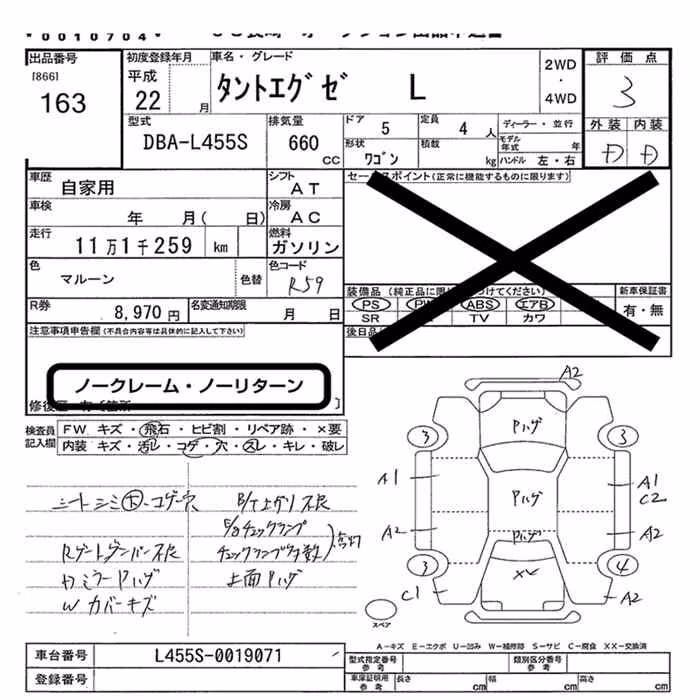 ▼0010704▼
出品番号
[866]
163
初度登録年月
平成
22 月
車名・グレード
タントエグゼ L
2WD
・
4WD
評価点
3
外装 内装
D D
型式
DBA-L455S
排気量
660 CC
ドア 5
定員 4 人
ディーラー・並行
形状 ワゴン
積載 kg
モデル年式 年
ハンドル 左・右
車歴 自家用
シフト AT
セールスポイント(正常に機能するものに限ります)
車検 年 月( 日)
冷房 AC
走行 11万1千259 km
燃料 ガソリン
色 マルーン 色替
色コード R59
装備品 (純正品に限
けてください)
新車保証書
PS PW ABS エアB
SR TV カワ
有・無
R券 8,970円
名変通知期限 月 日
後日品
注意事項申告欄(不具合内容等は具体的に記入して下さい)
ノークレーム・ノーリターン
検査員記入欄
FW キズ・飛石・ヒビ割・リペア跡・×要
内装 キズ・汚レ・コゲ・穴・スレ・キレ・破レ
シートシミ大・コゲ穴
B/T上がり不良
E/gチェックランプ
Rゲートダンパー不良
チェックランプ多数
点灯
ドミラーPハゲ
上面Pハゲ
Wカバーキズ
A2
Pハゲ
3 3
A1
Pハゲ
A1
C2
A2
Pハゲ
A2
3 4
××
C1
A2
スペア
A-キズ E-エクボ U-凹み W-補修跡 S-サビ C-腐食 XX-交換済
車台番号 L455S-0019071
型式指定番号 参考
類別区分番号 参考
登録番号
車庫証明用 参考
長さ cm
幅 cm
高さ cm